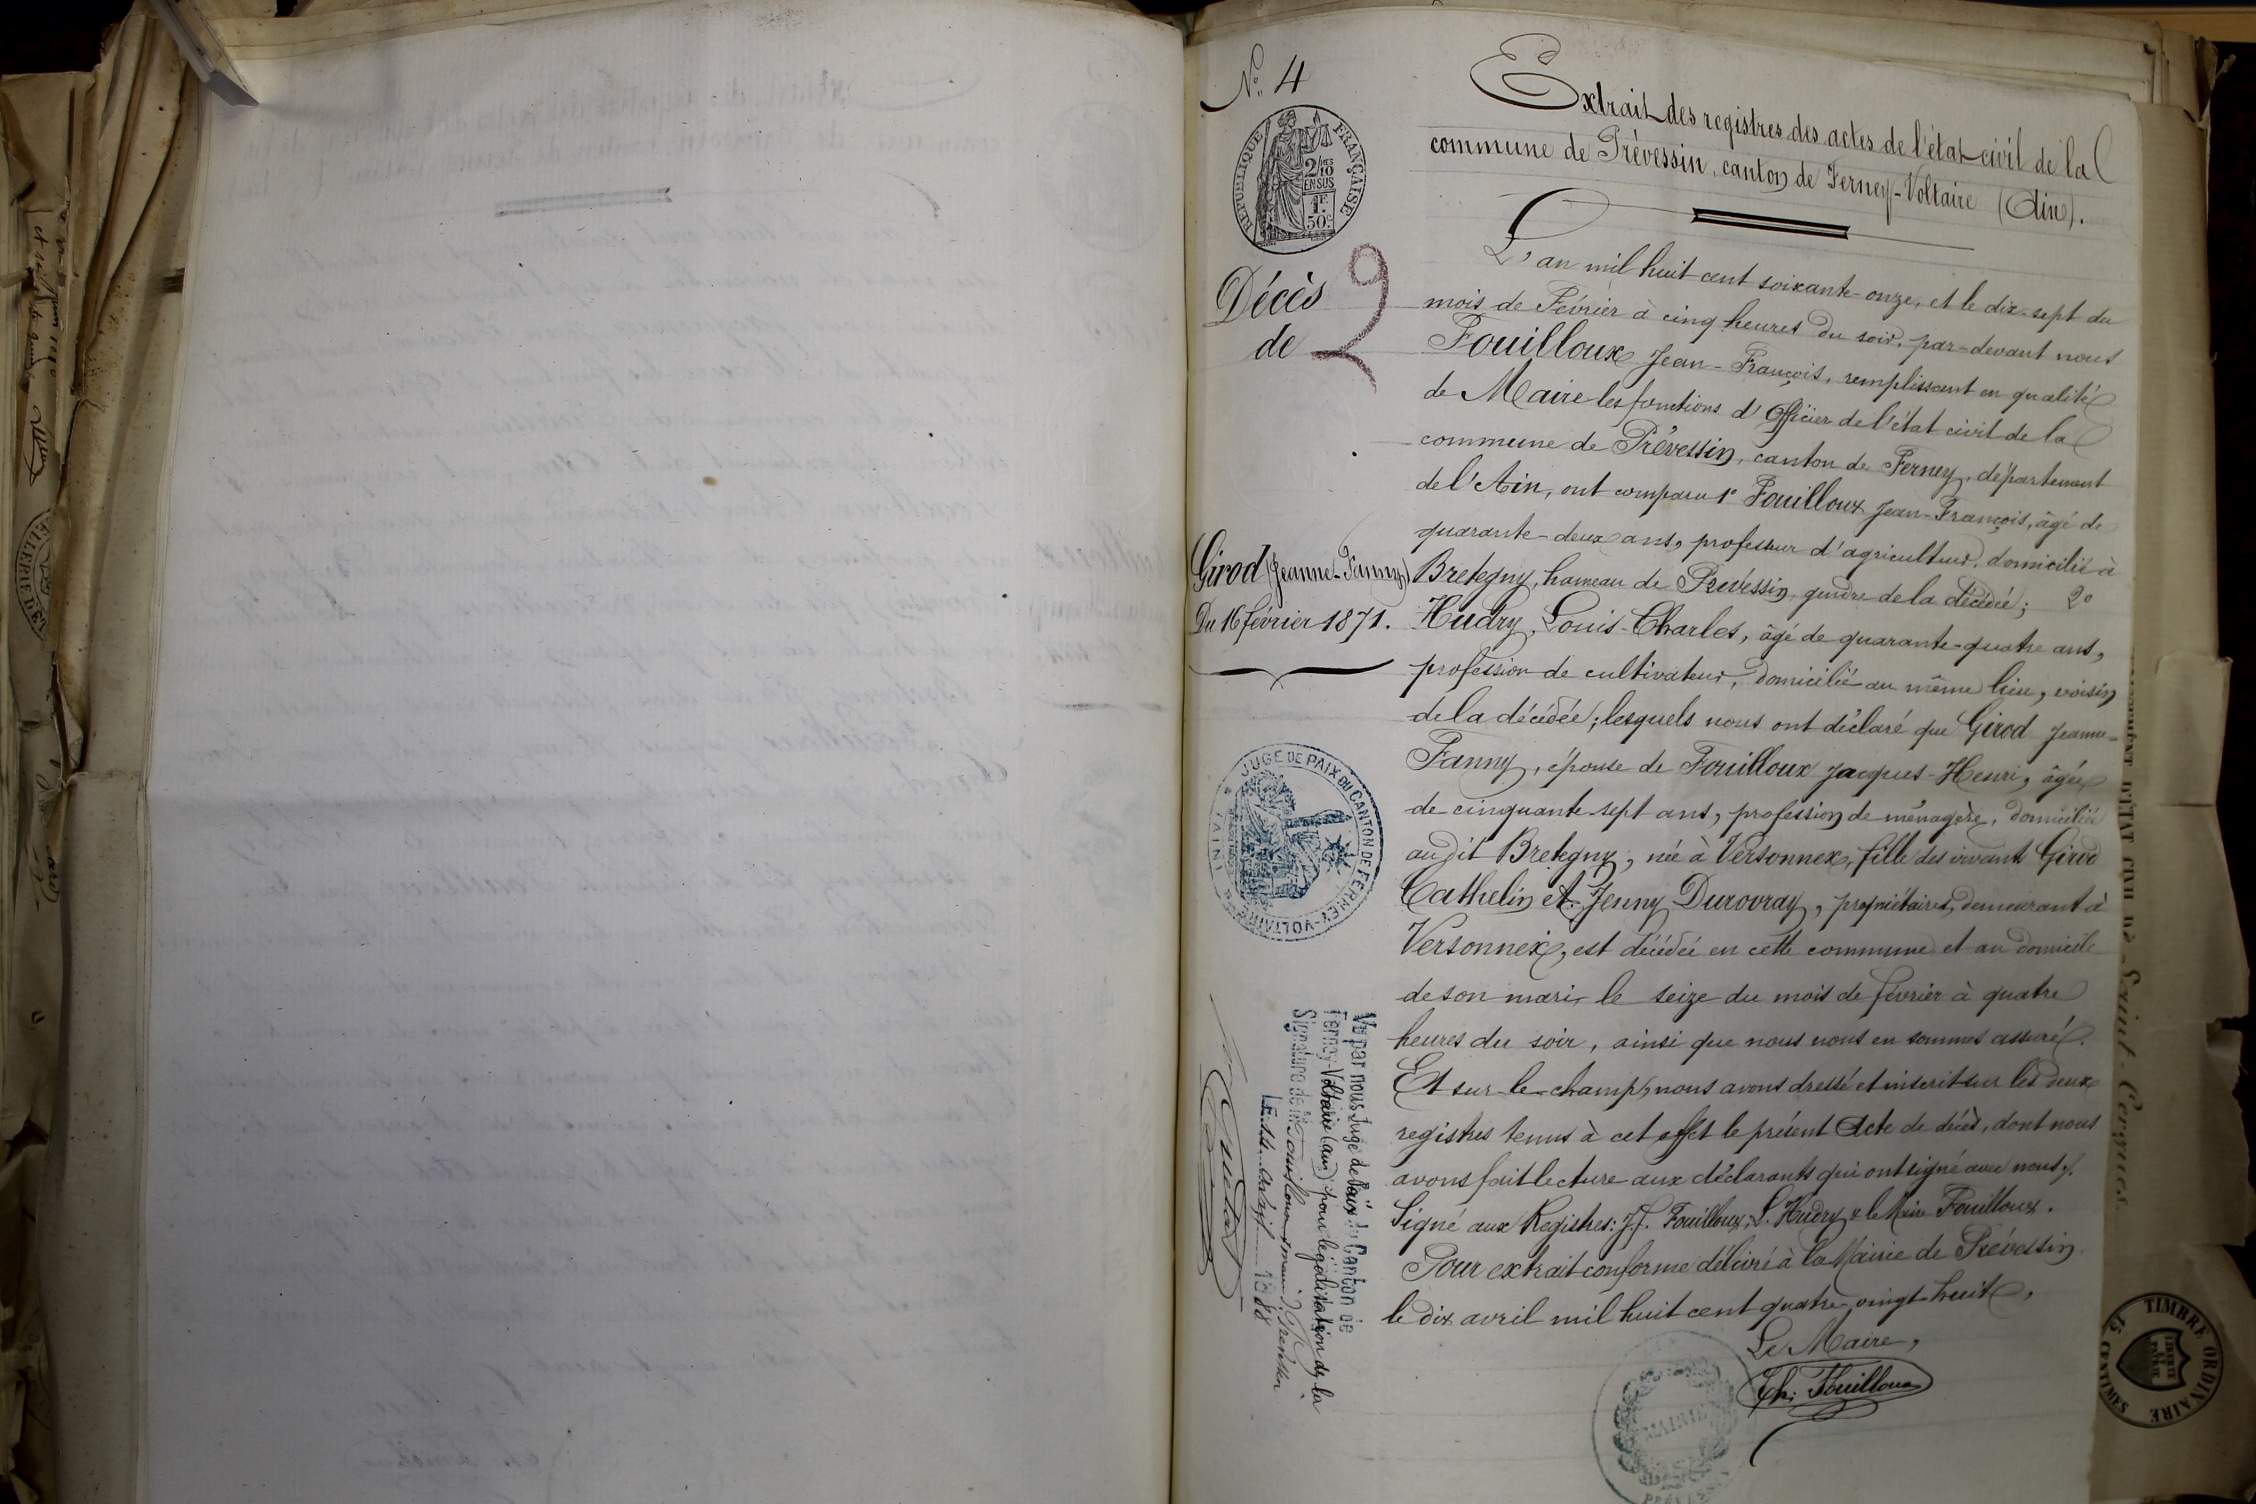 N° 4
Extrait des registres des actes de l'état civil de la
commune de Prévessin, canton de Ferney-Voltaire (Ain).
REPUBLIQUE FRANÇAISE
2/10 EN SUS
1F 50c
Décès
de
Girod (Jeanne-Fanny)
Du 16 février 1871.
L'an mil huit cent soixante-onze, et le dix-sept du
mois de Février à cinq heures du soir, par-devant nous
Fouilloux Jean-François, remplissant en qualité
de Maire les fonctions d'Officier de l'état civil de la
commune de Prévessin, canton de Ferney, département
de l'Ain, ont comparu 1° Fouilloux Jean-François, âgé de
quarante-deux ans, professeur d'agriculture, domicilié à
Bretegny, hameau de Prévessin, gendre de la décédée; 2°
Hudry, Louis-Charles, âgé de quarante-quatre ans,
profession de cultivateur, domicilié au même lieu, voisin
de la décédée; lesquels nous ont déclaré que Girod Jeanne-
Fanny, épouse de Fouilloux Jacques-Henri, âgée
de cinquante-sept ans, profession de ménagère, domiciliée
audit Bretegny, née à Versonnex, fille des vivants Girod
Cathelin et Jenny Durovray, propriétaires, demeurant à
Versonnex, est décédée en cette commune et au domicile
de son mari, le seize du mois de février à quatre
heures du soir, ainsi que nous nous en sommes assuré.
Et sur-le-champ, nous avons dressé et inscrit sur les deux
registres tenus à cet effet le présent Acte de décès, dont nous
avons fait lecture aux déclarants qui ont signé avec nous.
Signé aux Registres: J.F. Fouilloux, L. Hudry & le Maire Fouilloux.
Pour extrait conforme délivré à la Mairie de Prévessin
le dix avril mil huit cent quatre-vingt-huit,
Le Maire,
Ch. Fouilloux
MAIRIE
JUGE DE PAIX DU CANTON DE FERNEY-VOLTAIRE (AIN)
Vu par nous Juge de Paix du Canton de
Ferney-Voltaire (ain) pour légalisation de la
Signature de M Fouilloux maire à Prévessin
Le 1888
TIMBRE ORDINAIRE
15 CENTIMES
LIBERTÉ ET PATRIE